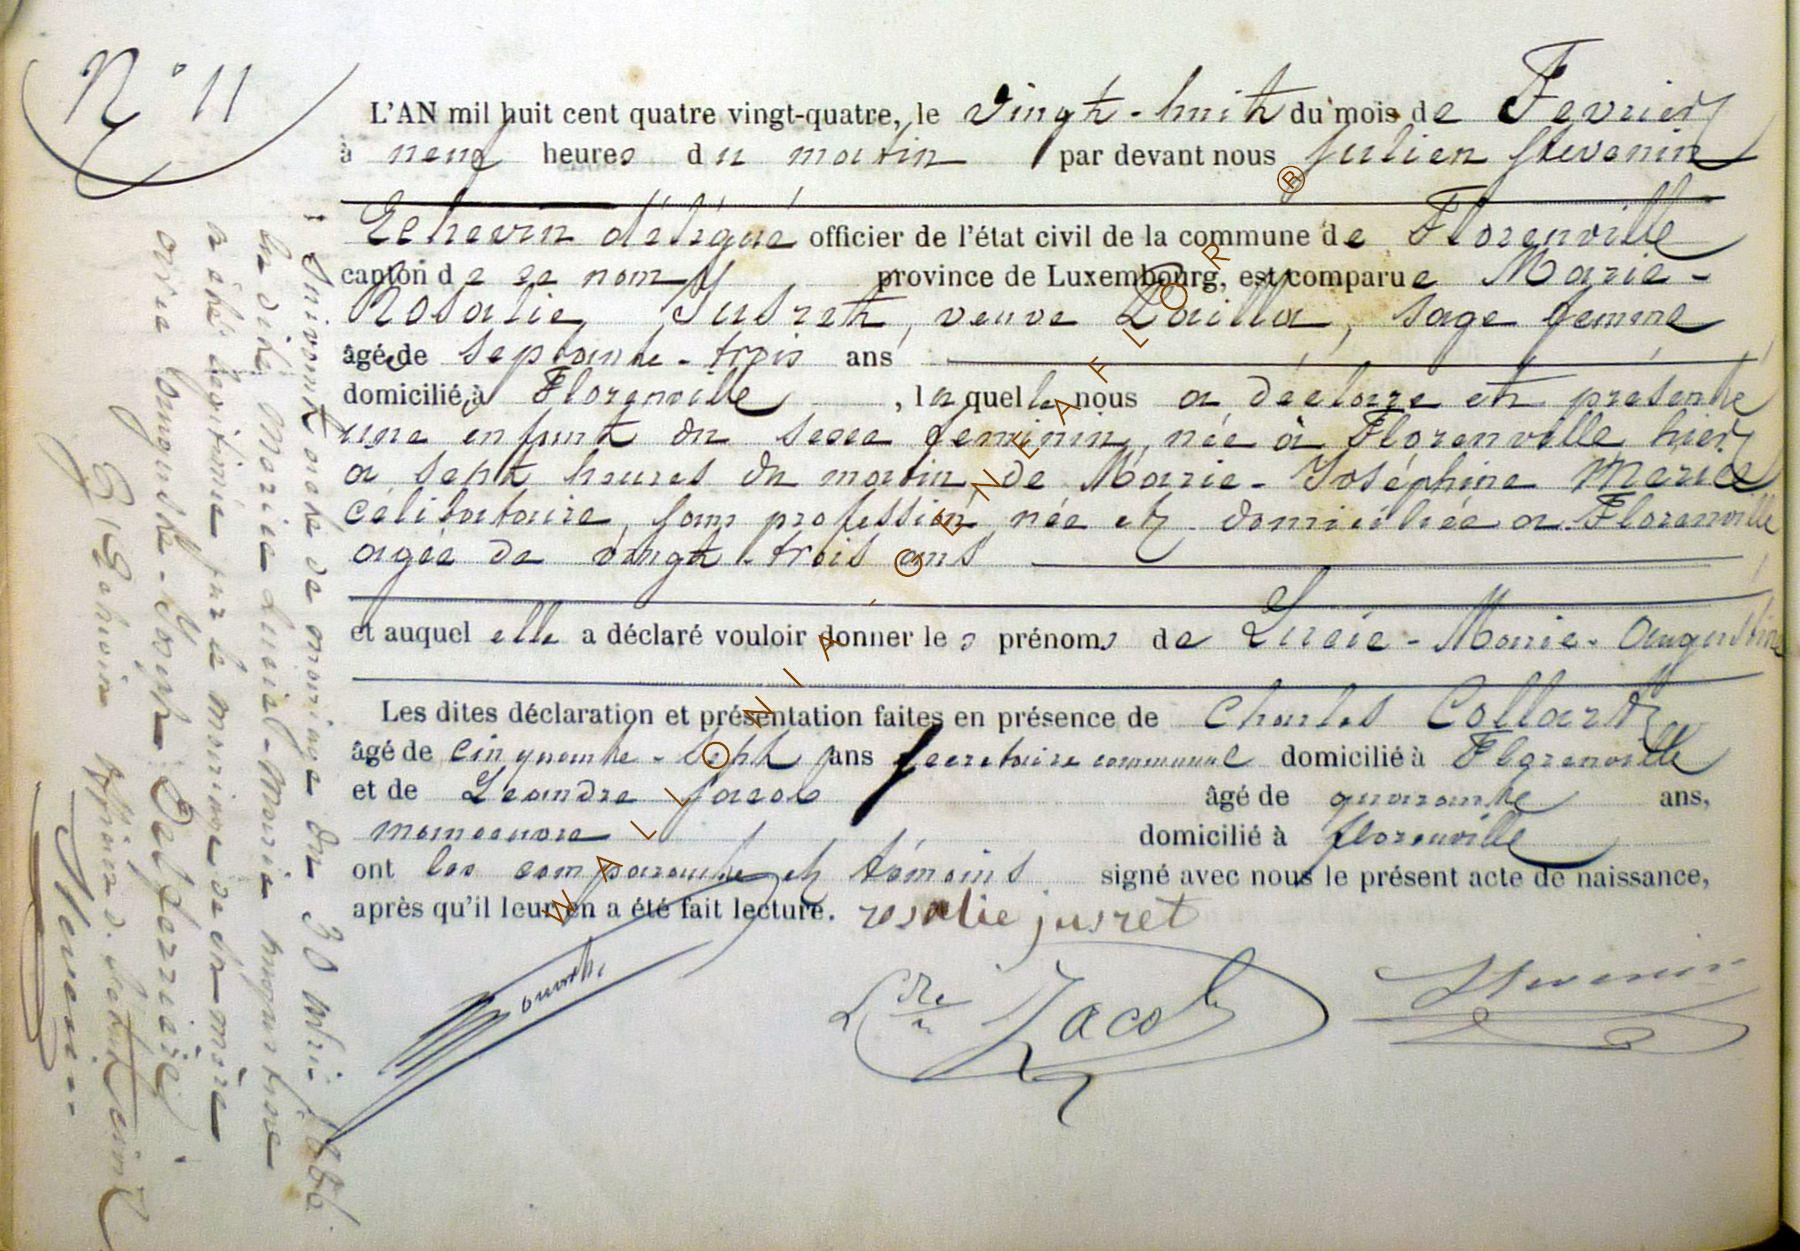 N° 11
L'AN mil huit cent quatre vingt-quatre, le vingt-huit du mois de Fevrier
à neuf heures du matin par devant nous Julien Stevenin
Echevin délégué officier de l'état civil de la commune de Florenville
canton de ce nom province de Luxembourg, est comparue Marie-
Rosalie Jusret, veuve , sage femme
âgé de septante-trois ans
domicilié à Florenville, laquelle nous a déclaré et présenté
une enfant du sexe feminin, née à Florenville hier
a sept heures du matin, de Marie-Joséphine
célibataire, sans profession, née et domiciliée a Florenville
agée de vingt-trois ans
et auquel elle a déclaré vouloir donner les prénoms de Lucie-Marie-Augustine
Les dites déclaration et présentation faites en présence de Charles Collard
âgé de cinquante-sept ans secretaire communal domicilié à Florenville
et de Leandre Jacob âgé de quarante ans,
manoeuvre domicilié à florenville
ont les comparante et témoins signé avec nous le présent acte de naissance,
après qu'il leur en a été fait lecture. rosalie jusret
Jacob
Stevenin
Suivant acte de mariage du 30 1886
la dite Marie
a été légitimée par le mariage de sa mère
avec Auguste-Joseph
L'Echevin officier d.
Stevenin
WALLONIA - GENEAFLOR ®